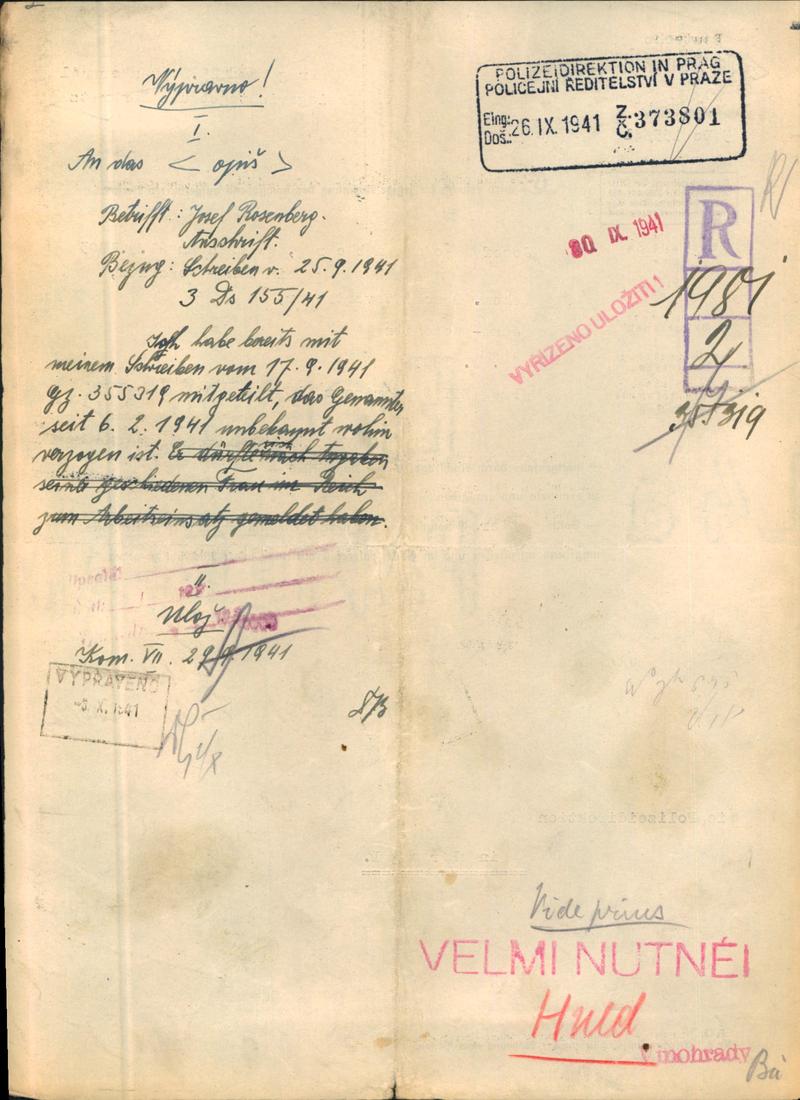 Výpravno!
I.
An das < opiš >
Betrifft: Josef Rosenberg.
Anschrift.
Bezug: Schreiben v. 25.9.1941
3 Ds 155/41
Ich habe bereits mit
meinem Schreiben vom 17.9.1941
gz. 355319 mitgeteilt, das Genannter
seit 6.2.1941 unbekannt wohin
verzogen ist. Er dürfte sich nach Angaben
seiner geschiedenen Frau im Reich
zum Arbeitseinsatz gemeldet haben.
II.
Ulož
Kom. VII. 29.9.1941
VYPRAVENO
-3. X. 1941
POLIZEIDIREKTION IN PRAG
POLICEJNÍ ŘEDITELSTVÍ V PRAZE
Eing.: Doš.: 26. IX. 1941 Z. Č. 373801
30. IX. 1941
R
VYŘÍZENO ULOŽITI!
1981
2
355319
Vide prius
VELMI NUTNÉ!
Huld
Vinohrady